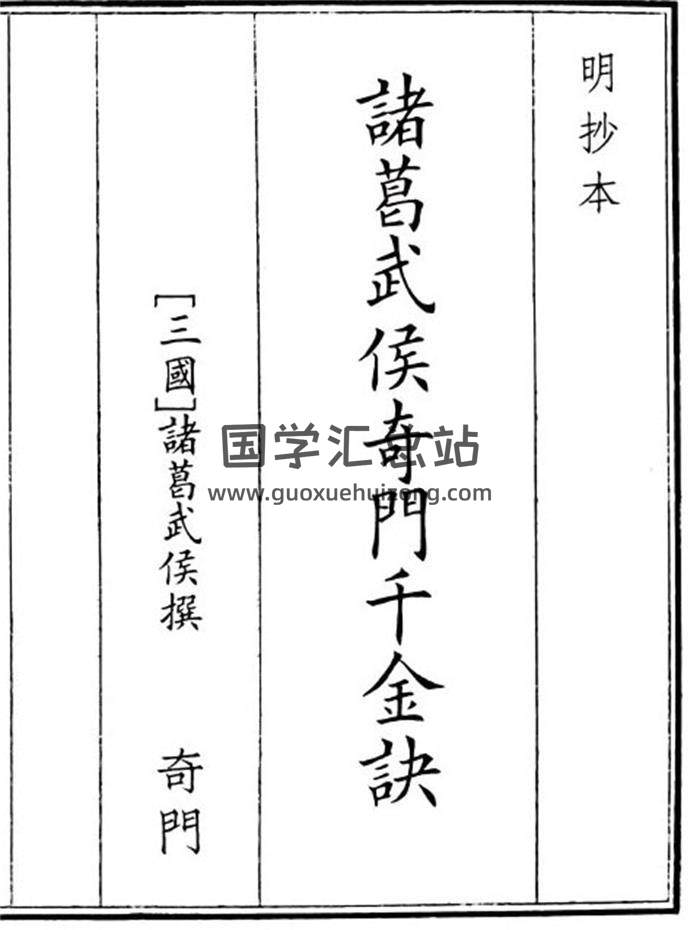 明抄本
諸葛武侯奇門千金訣
[三國]諸葛武侯撰 奇門
国学汇总站
www.guoxuehuizong.com